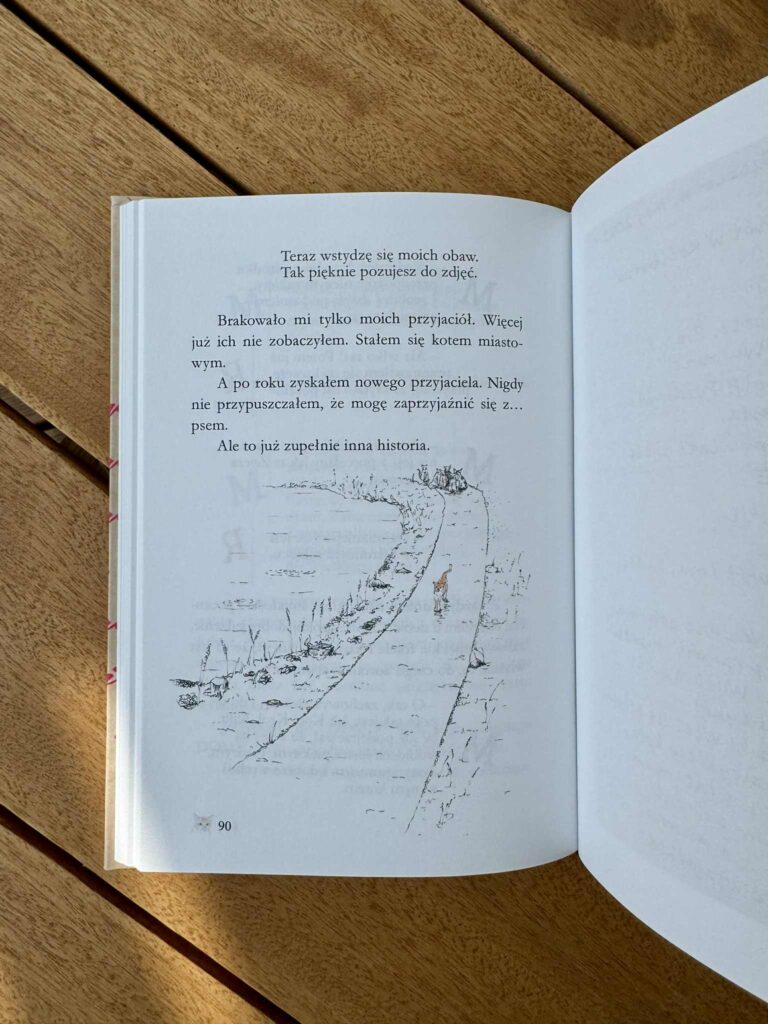 Teraz wstydzę się moich obaw.
Tak pięknie pozujesz do zdjęć.
Brakowało mi tylko moich przyjaciół. Więcej
już ich nie zobaczyłem. Stałem się kotem miasto-
wym.
A po roku zyskałem nowego przyjaciela. Nigdy
nie przypuszczałem, że mogę zaprzyjaźnić się z…
psem.
Ale to już zupełnie inna historia.
90